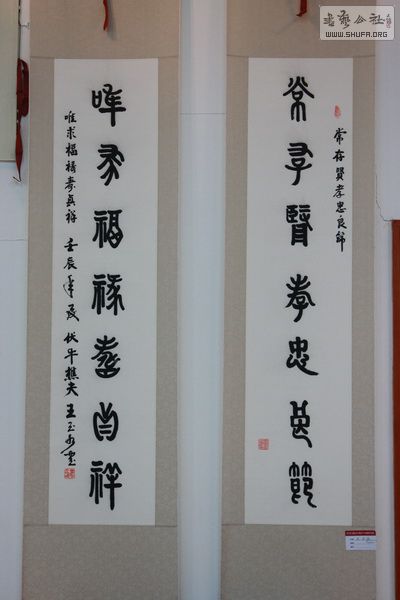 書藝公社
WWW.SHUFA.ORG
常存賢孝忠良節
常存賢孝忠良節
唯求福祿壽貞祥
唯求福祿壽貞祥 壬辰年夏 伏牛樵夫 王玉書